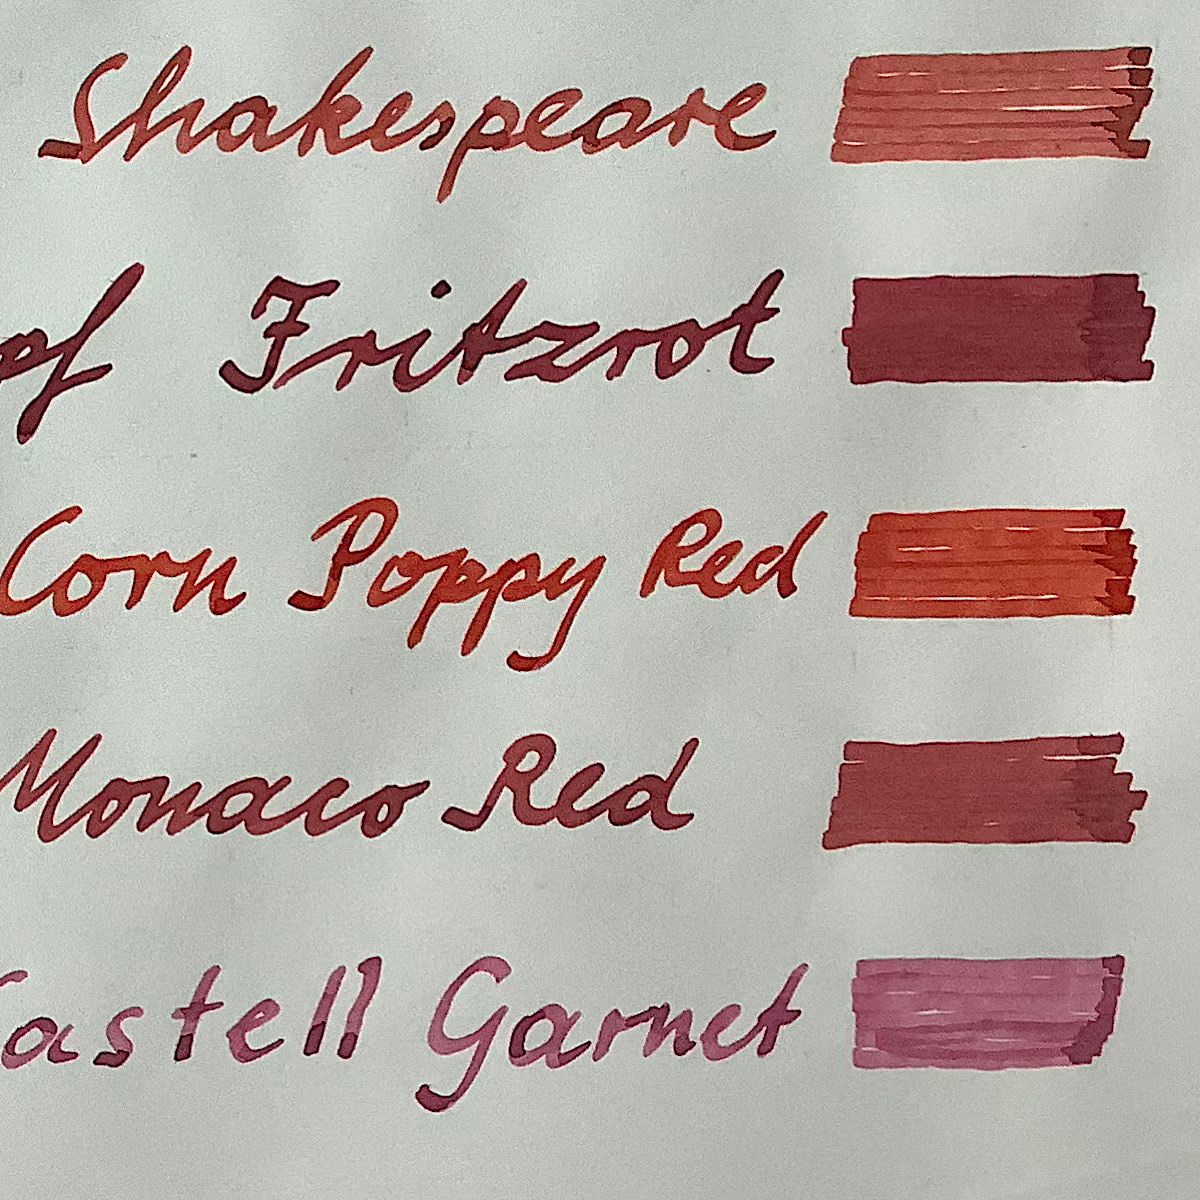 Shakespeare
pf Fritzrot
Corn Poppy Red
Monaco Red
Castell Garnet